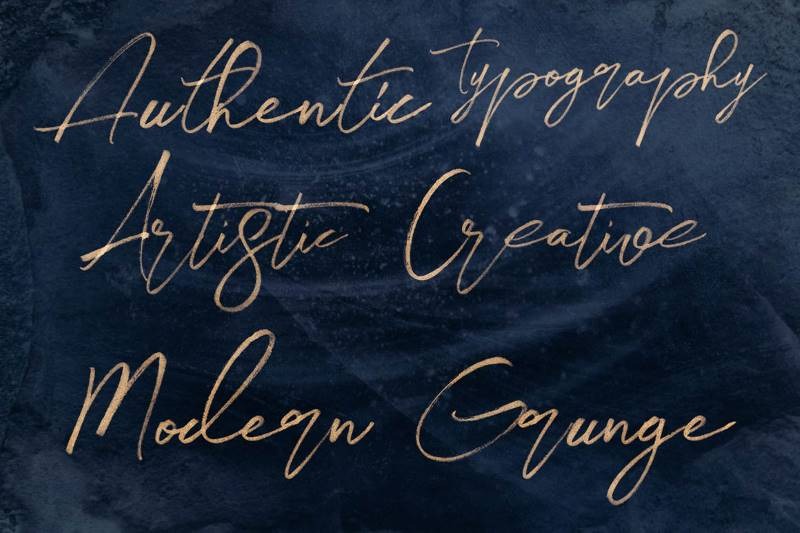 Authentic typography
Artistic Creative
Modern Grunge